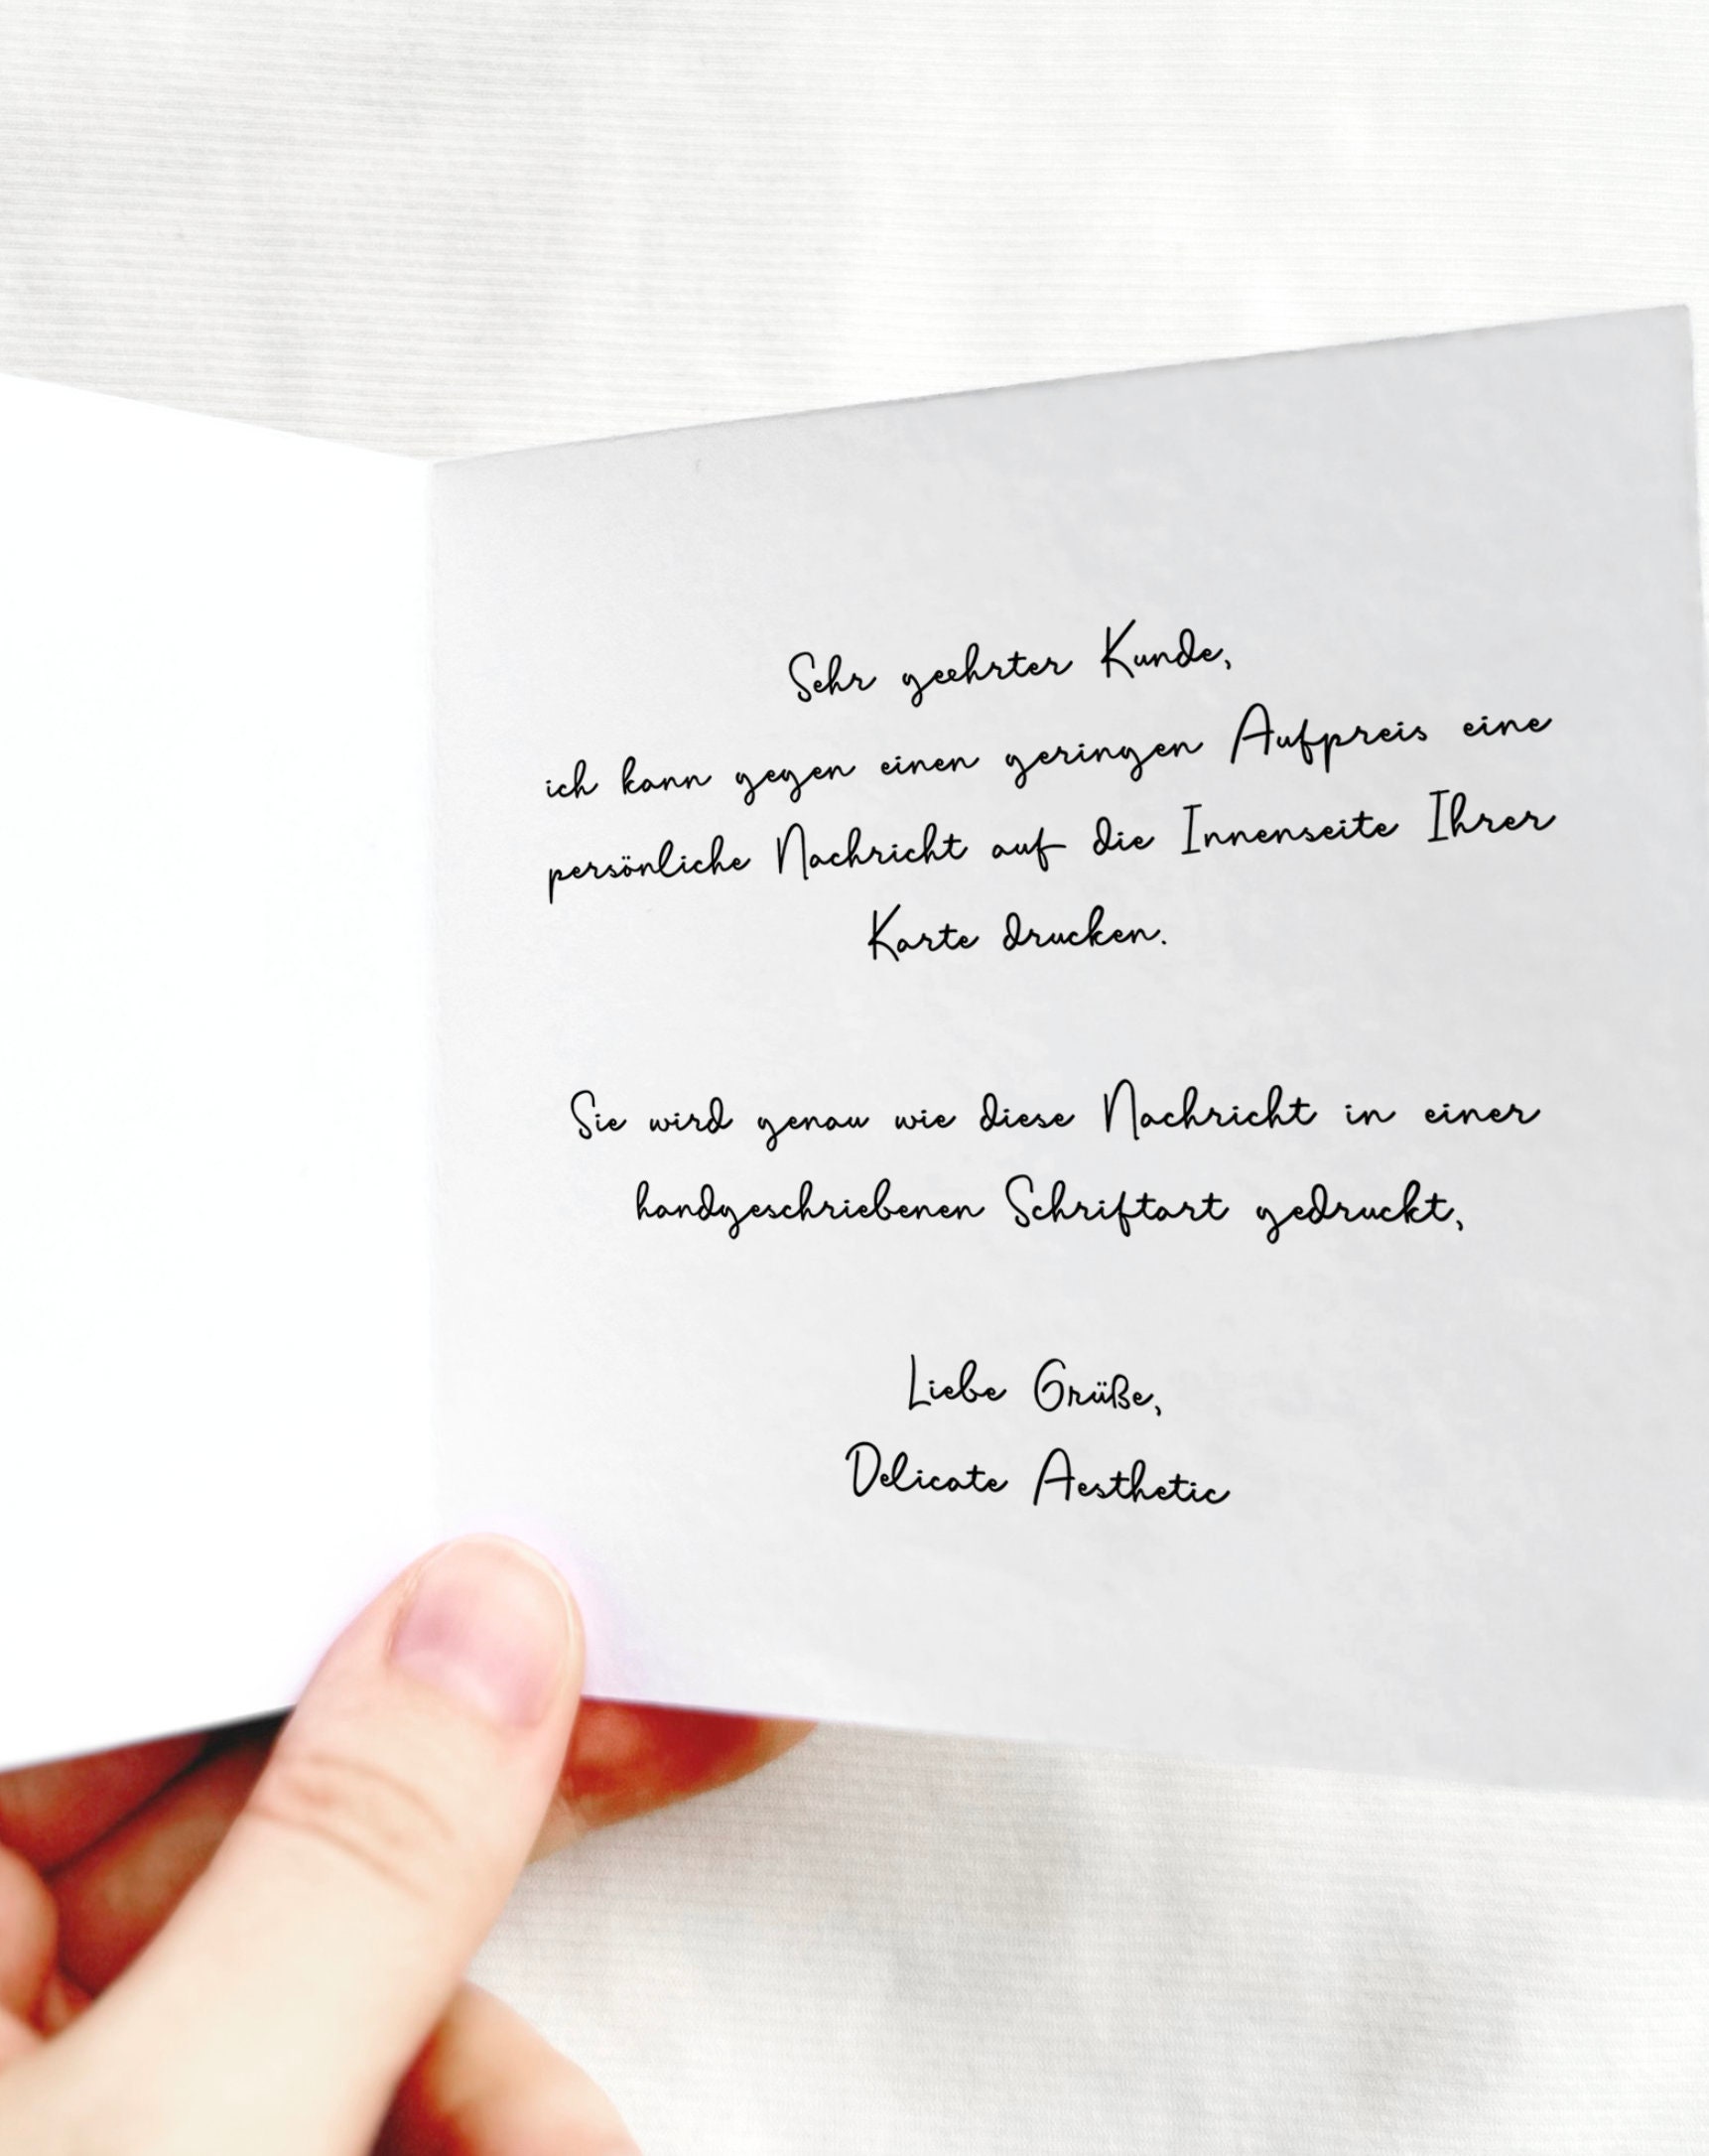 Sehr geehrter Kunde,
ich kann gegen einen geringen Aufpreis eine
persönliche Nachricht auf die Innenseite Ihrer
Karte drucken.
Sie wird genau wie diese Nachricht in einer
handgeschriebenen Schriftart gedruckt,
Liebe Grüße,
Delicate Aesthetic